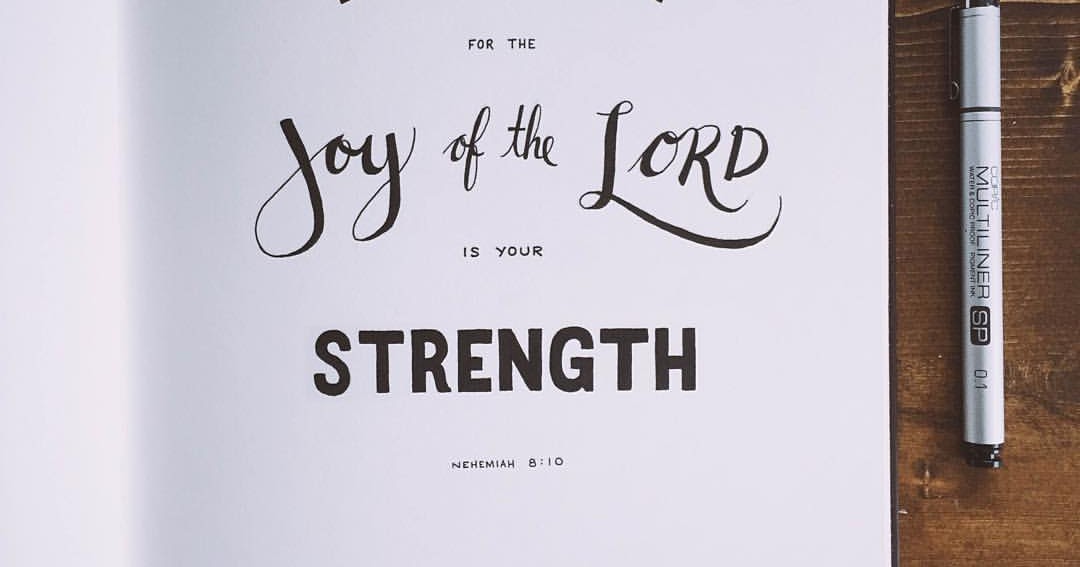 FOR THE
Joy of the LORD
IS YOUR
STRENGTH
NEHEMIAH 8:10
COPIC
MULTILINER SP 0.1
WATER & COPIC PROOF PIGMENT INK